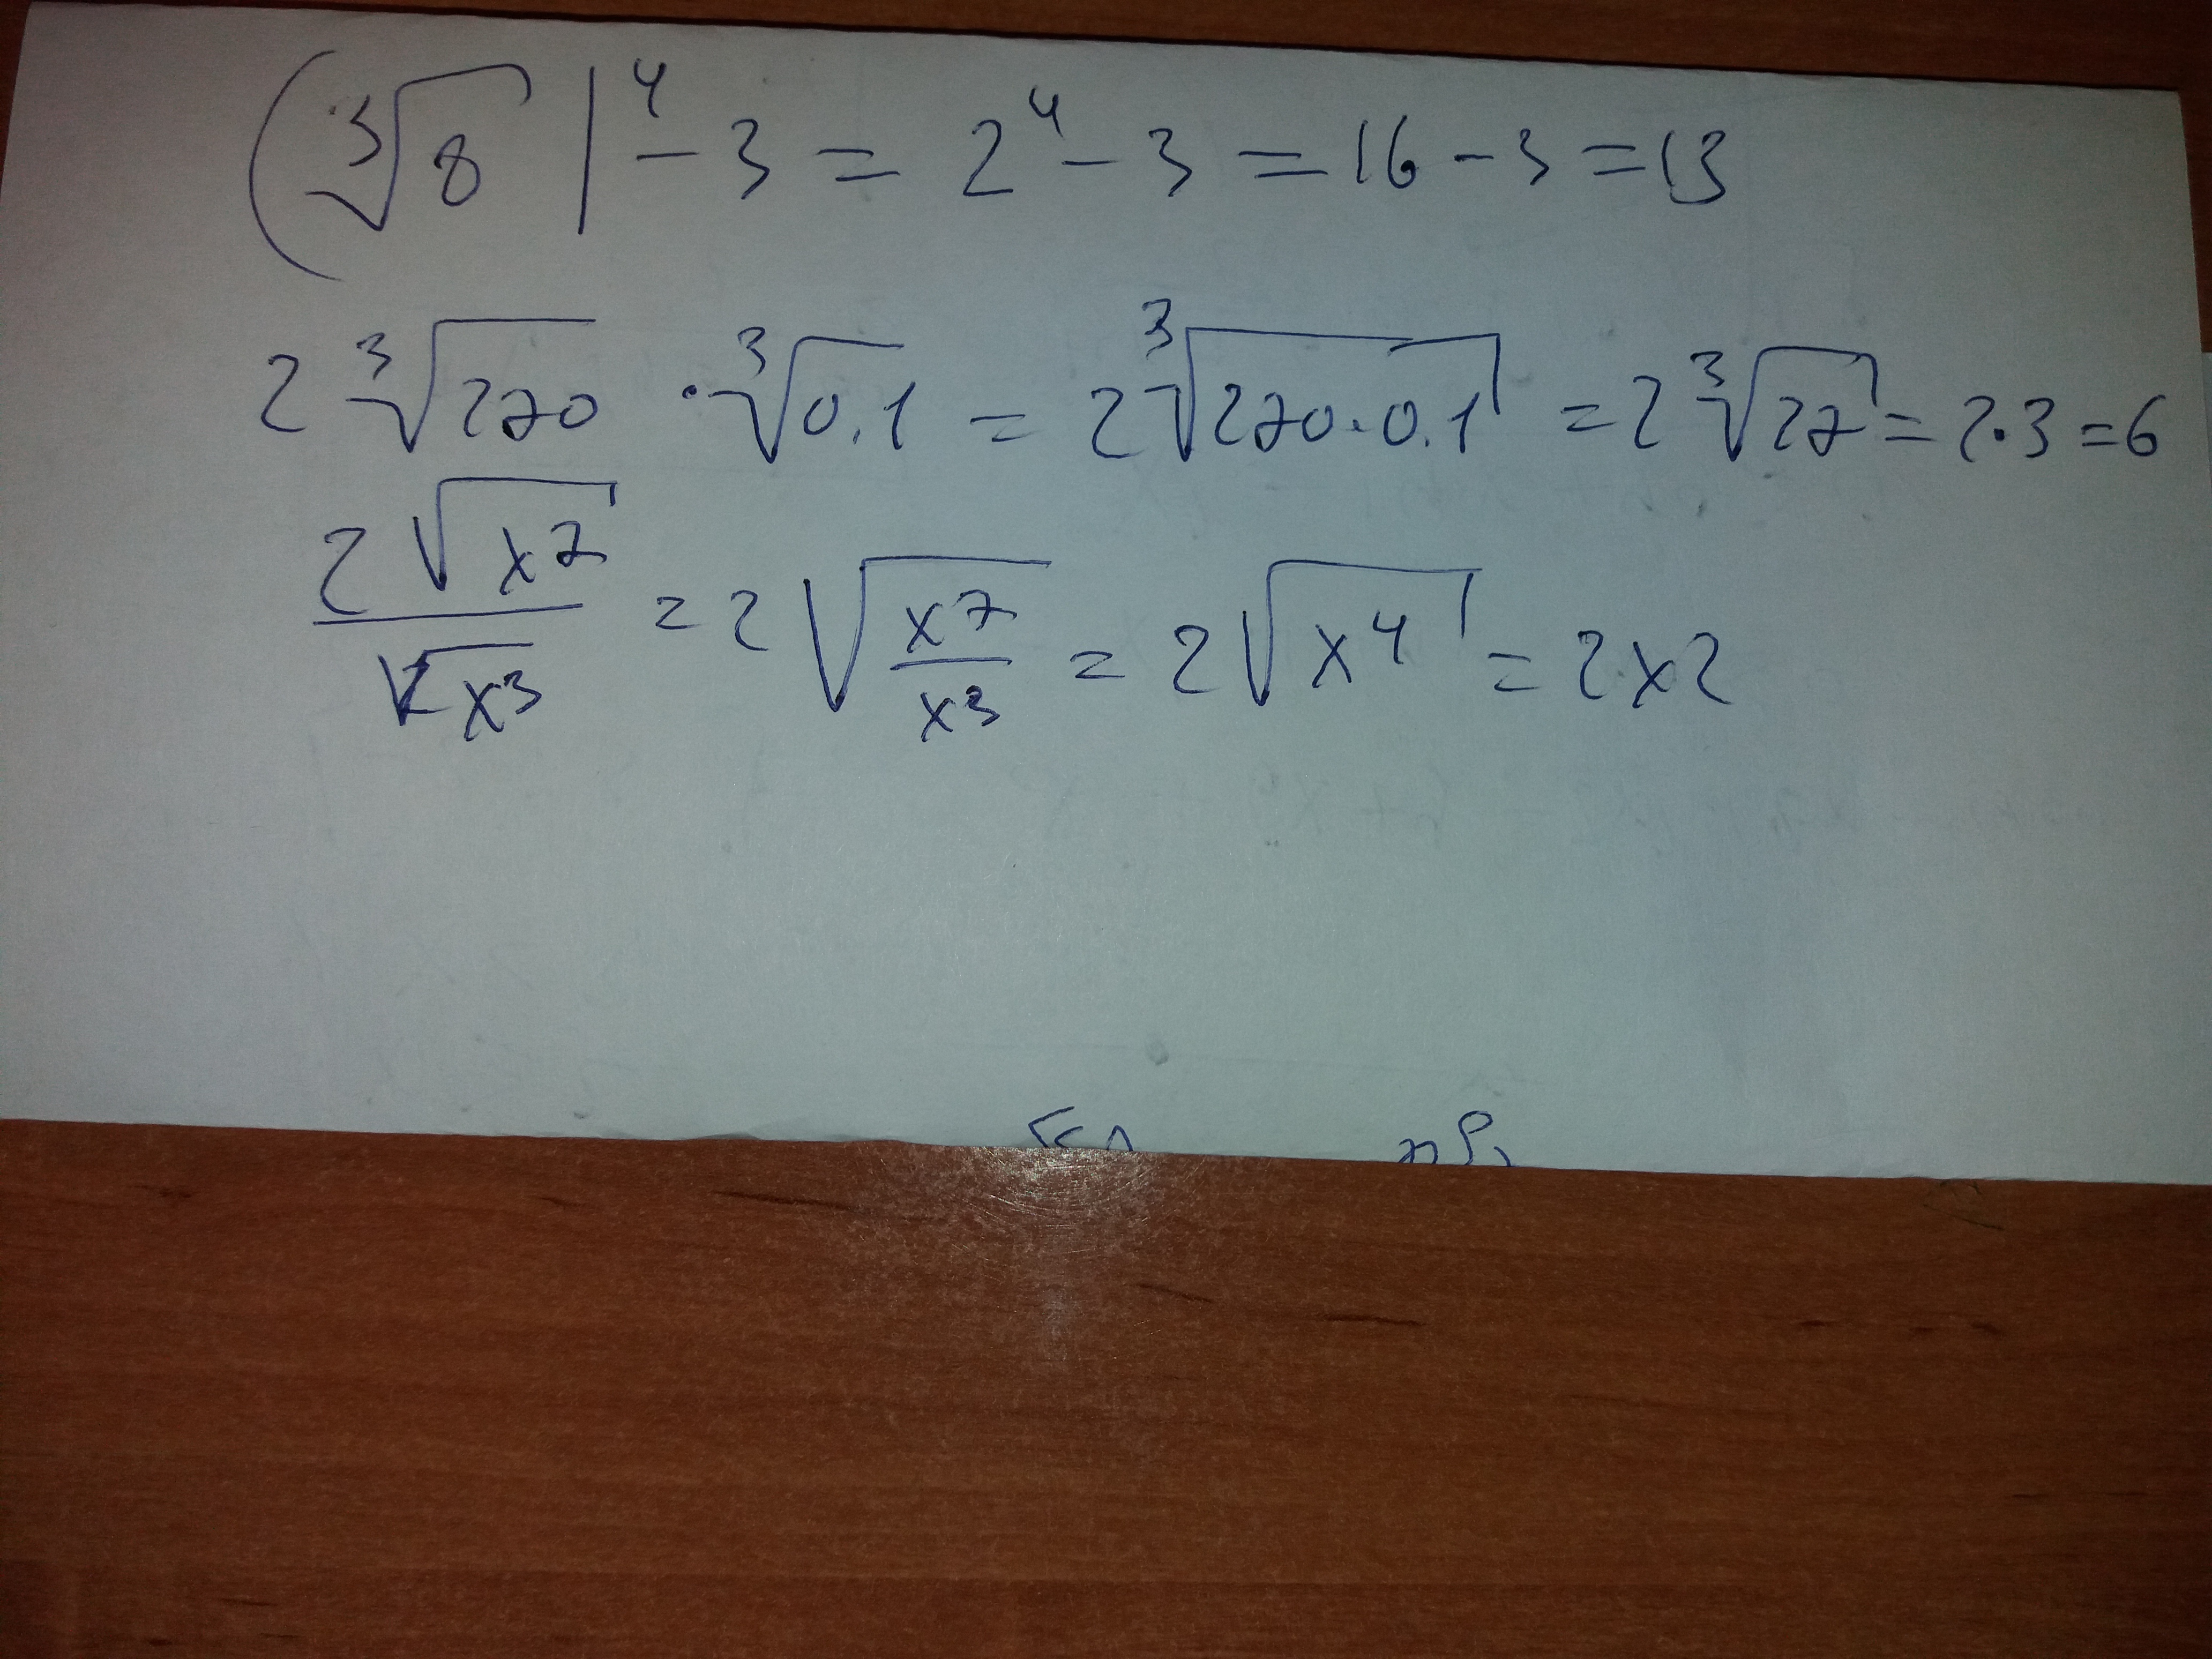 (³√8)⁴ - 3 = 2⁴ - 3 = 16 - 3 = 13
2 ³√270 · ³√0.1 = 2 ³√270·0.1 = 2 ³√27 = 2·3 = 6
2√x7 / √x3 = 2√x7/x3 = 2√x4 = 2x2